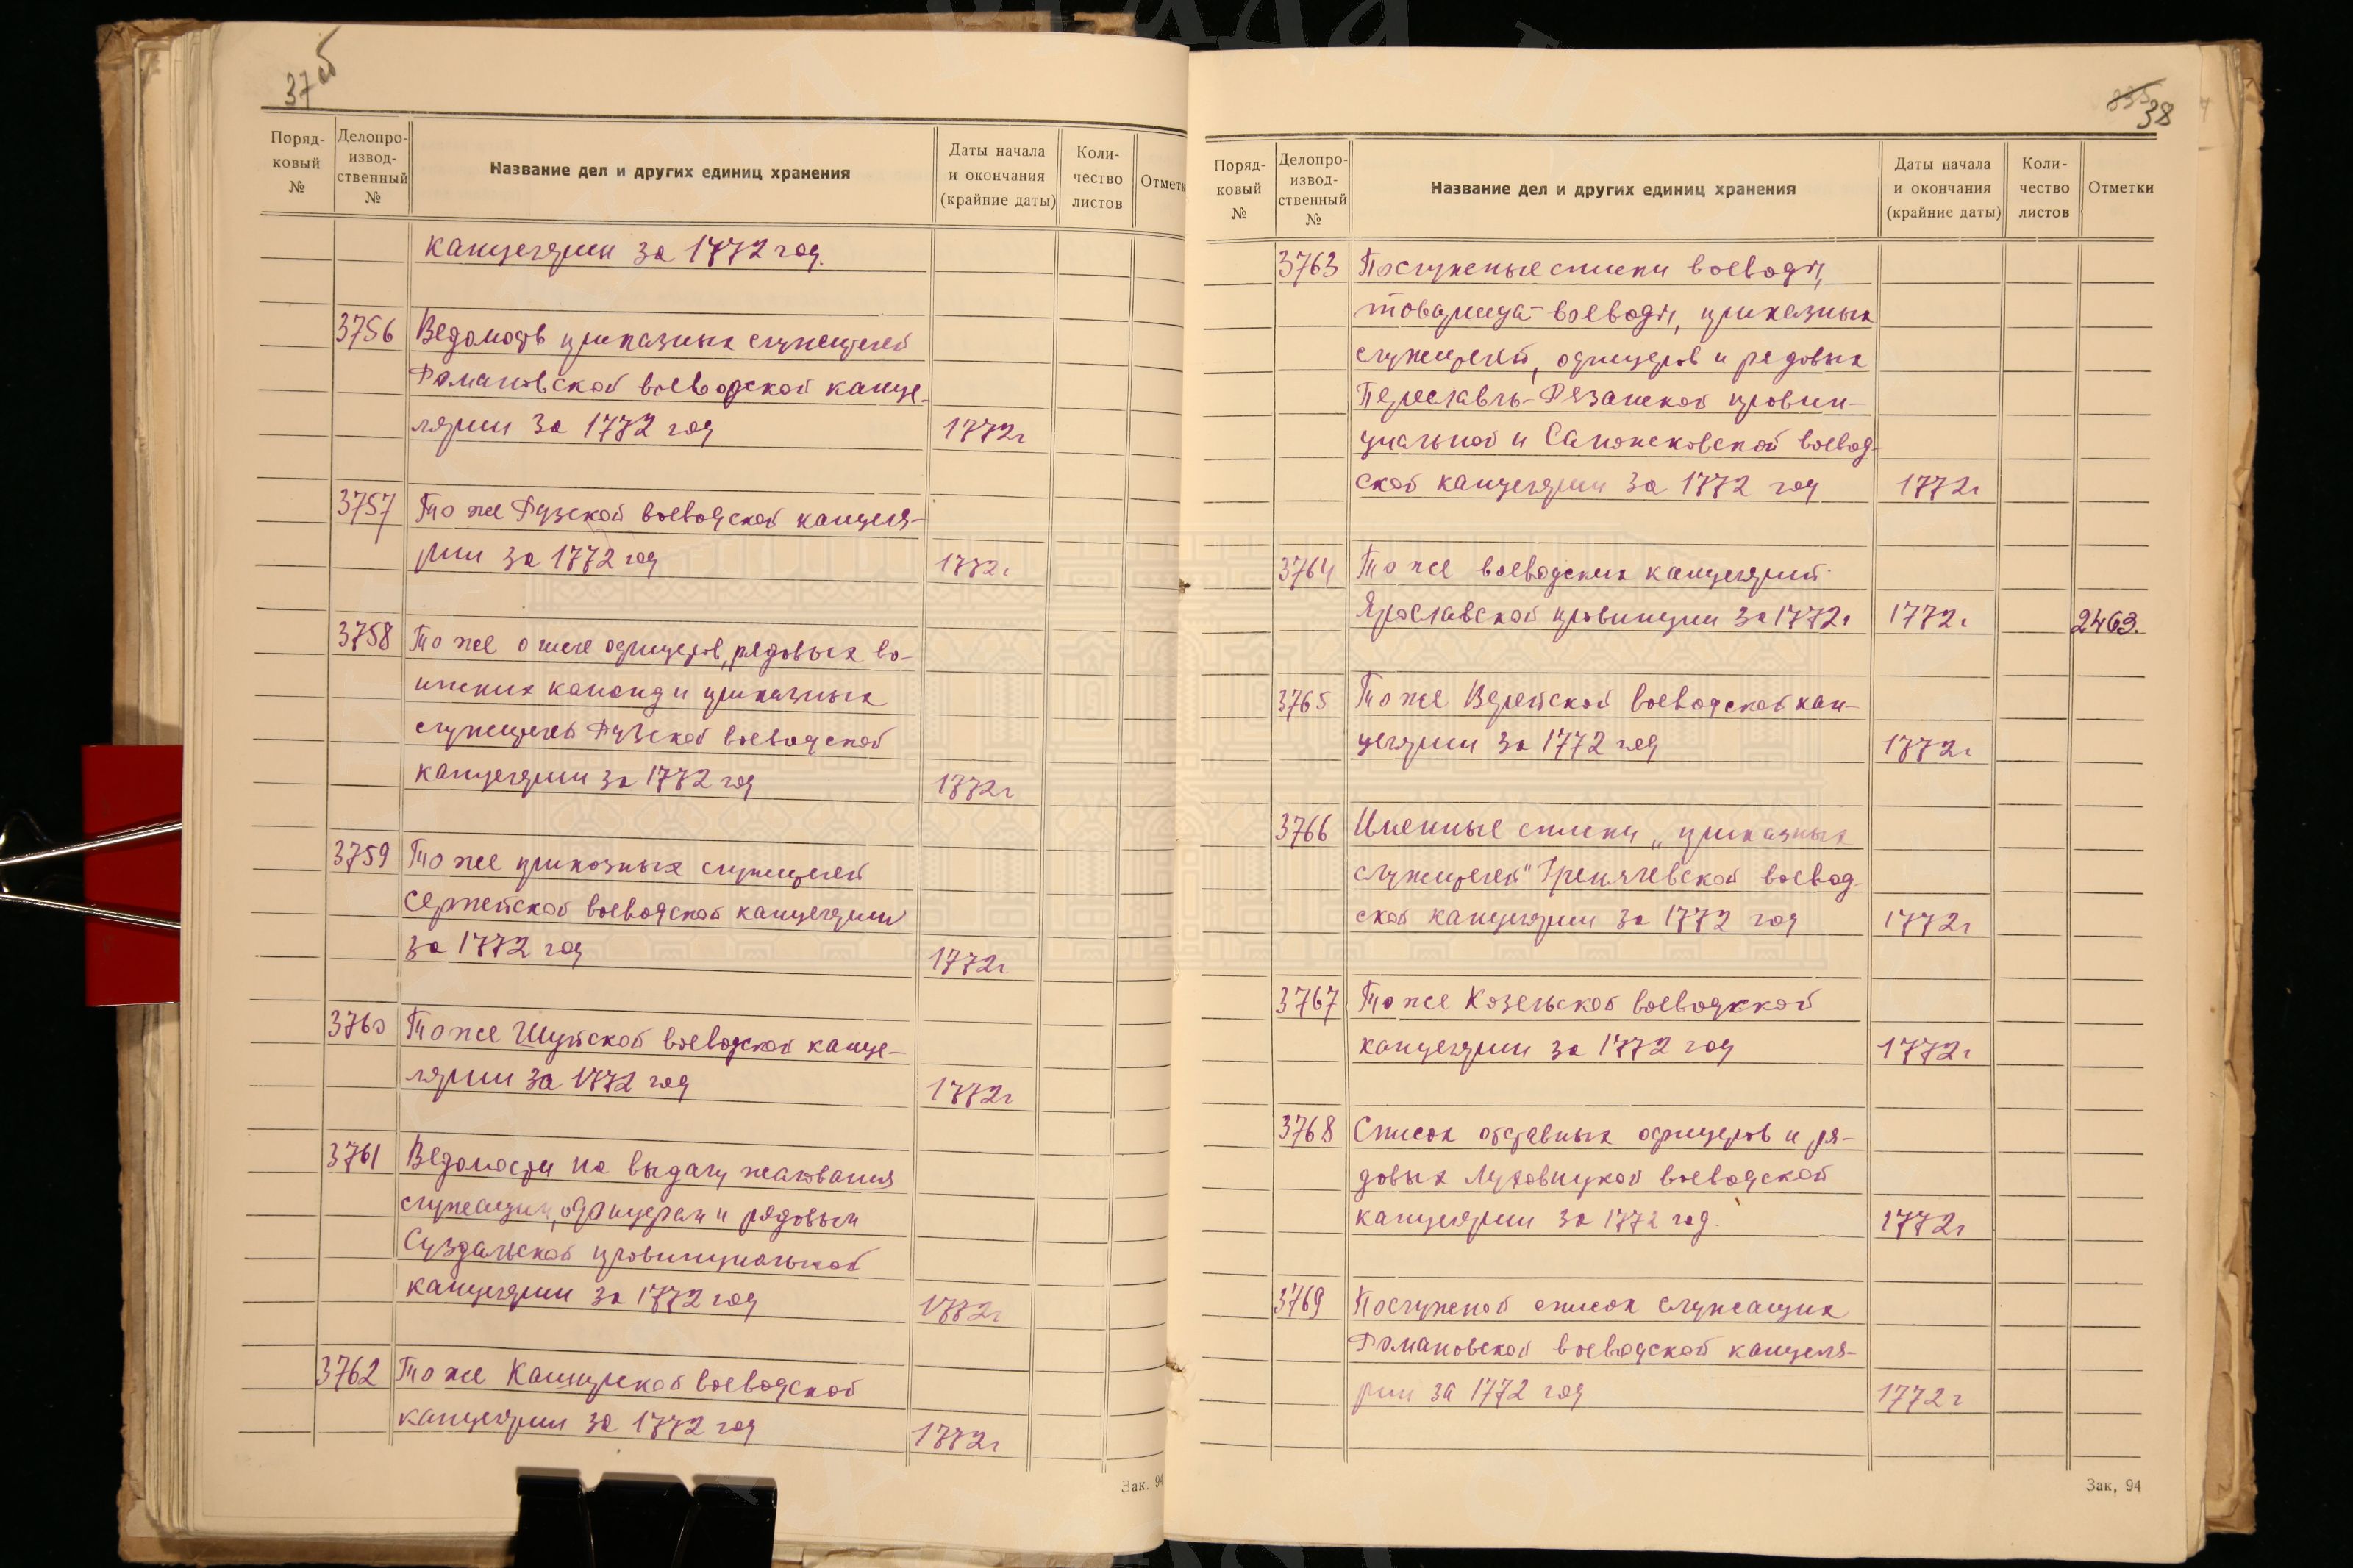 37об
Поряд-
ковый
№
Делопро-
извод-
ственный
№
Название дел и других единиц хранения
Даты начала
и окончания
(крайние даты)
Коли-
чество
листов
Отметк
канцелярии за 1772 год.
3756 Ведомость приказных служителей
Романовской воеводской канце-
лярии за 1772 год 1772г
3757 То же Рузской воеводской канцеля-
рии за 1772 год 1772г
3758 То же о числе офицеров, рядовых во-
инских команд и приказных
служителей Рузской воеводской
канцелярии за 1772 год 1772г
3759 То же приказных служителей
Серпейской воеводской канцелярии
за 1772 год 1772г
3760 То же Шуйской воеводской канце-
лярии за 1772 год 1772г
3761 Ведомости на выдачу жалования
служащим, офицерам и рядовым
Суздальской провинциальной
канцелярии за 1772 год 1772г
3762 То же Каширской воеводской
канцелярии за 1772 год 1772г
Зак. 94
38
Поряд-
ковый
№
Делопро-
извод-
ственный
№
Название дел и других единиц хранения
Даты начала
и окончания
(крайние даты)
Коли-
чество
листов
Отметки
3763 Послужные списки воеводы,
товарища воеводы, приказных
служителей, офицеров и рядовых
Переславль-Рязанской провин-
циальной и Сапожковской воевод-
ской канцелярии за 1772 год 1772г
3764 То же воеводских канцелярий
Ярославской провинции за 1772г 1772г. 2463.
3765 То же Верейской воеводской кан-
целярии за 1772 год 1772г
3766 Именные списки „приказных
служителей" Гремячевской воевод-
ской канцелярии за 1772 год 1772г
3767 То же Козельской воеводской
канцелярии за 1772 год 1772г
3768 Список отставных офицеров и ря-
довых Луховицкой воеводской
канцелярии за 1772 год. 1772г
3769 Послужной список служащих
Романовской воеводской канцеля-
рии за 1772 год 1772г
Зак, 94